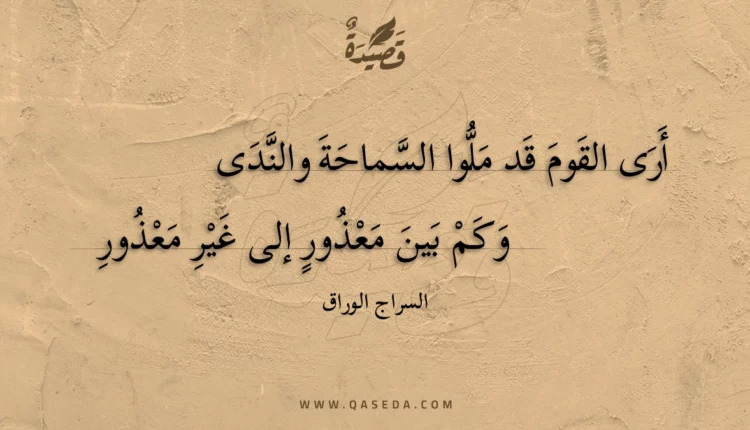 قَصِيْدَةٌ
أَرَى القَومَ قَد مَلُّوا السَّماحَةَ والنَّدَى
وَكَمْ بَينَ مَعْذُورٍ إلى غَيْرِ مَعْذُورِ
السراج الوراق
WWW.QASEDA.COM